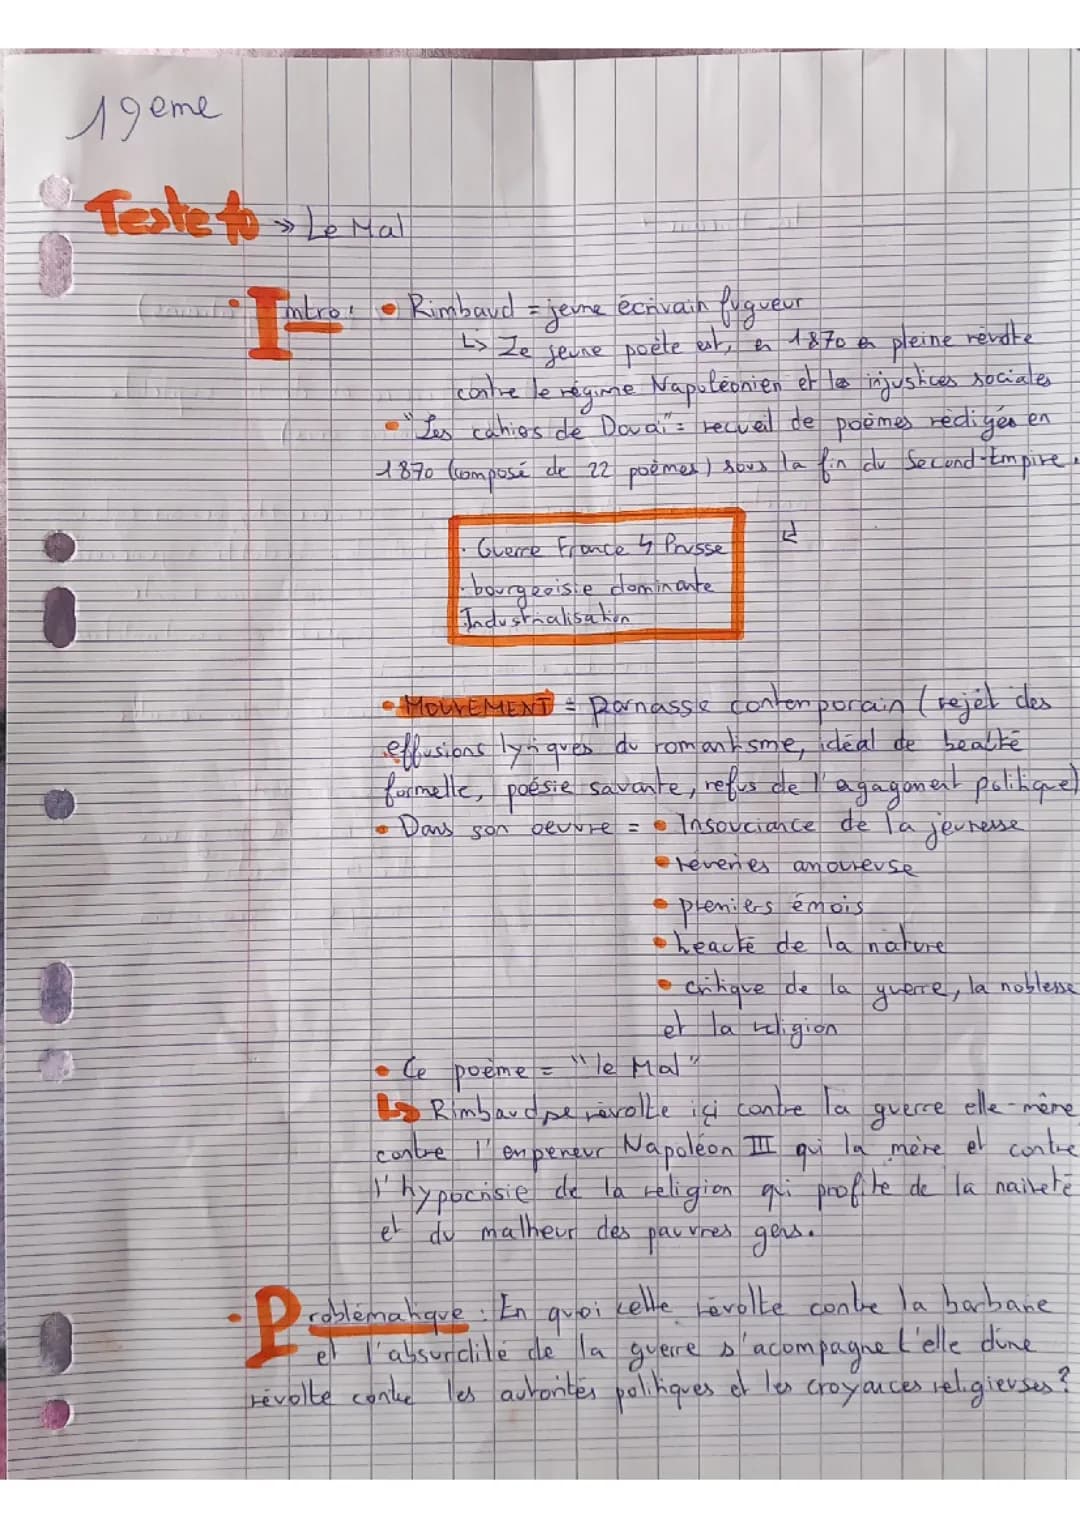 19eme
Texte 10 » Le Mal
• Intro : • Rimbaud = jeune écrivain fugueur
↳ Le jeune poète est, en 1870 en pleine révolte
contre le régime Napoléonien et les injustices sociales
• "Les cahiers de Douai" = recueil de poèmes rédigés en
1870 (composé de 22 poèmes) sous la fin du Second-Empire.
· Guerre France Prusse
· bourgeoisie dominante
· Industrialisation
• MOUVEMENT = Parnasse contemporain (rejet des
effusions lyriques du romantisme, idéal de beauté
formelle, poésie savante, refus de l'agagement politique)
• Dans son oeuvre = • Insouciance de la jeunesse
• rêveries amoureuse
• premiers émois
• beauté de la nature
• critique de la guerre, la noblesse
et la religion
• Ce poème = "le Mal"
↳ Rimbaud se révolte içi contre la guerre elle-même,
contre l'empereur Napoléon III qui la mène et contre
l'hypocrisie de la religion qui profite de la naiveté
et du malheur des pauvres gens.
• Problématique : En quoi celle révolte contre la barbarie
et l'absurdité de la guerre s'acompagne t'elle dune
révolte contre les autorités politiques et les croyances religieuses ?